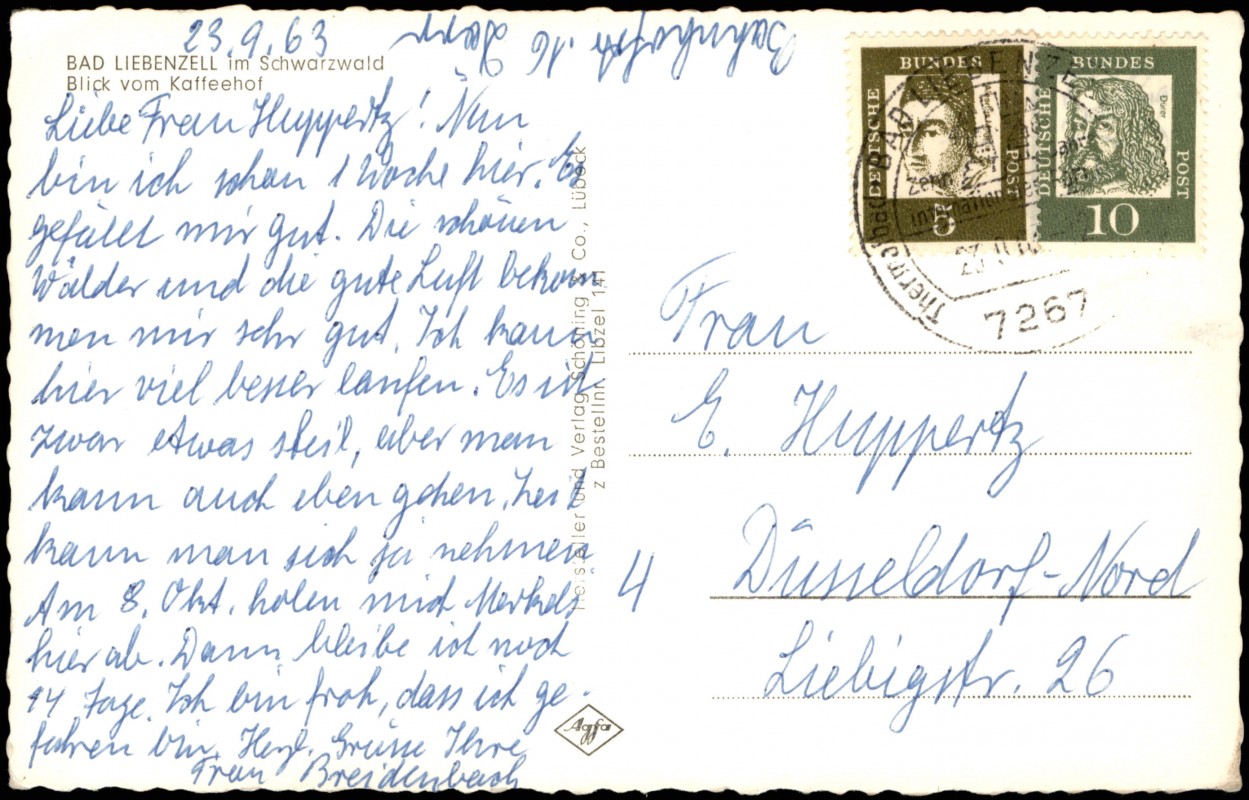 23.9.63
Bahnhofstr. 16
BAD LIEBENZELL im Schwarzwald
Blick vom Kaffeehof
Liebe Frau Huppertz! Nun
bin ich schon 1 Woche hier. Es
gefällt mir gut. Die schönen
Wälder und die gute Luft bekom
men mir sehr gut. Ich kann
hier viel besser laufen. Es ist
zwar etwas steil, aber man
kann auch eben gehen. Zeit
kann man sich ja nehmen
Am 8. Okt. holen mich Merkels
hier ab. Dann bleibe ich noch
14 Tage. Ich bin froh, dass ich ge-
fahren bin. Herzl. Grüsse Ihre
Frau Breidenbach
Hersteller und Verlag Schöning & Co., Lübeck
z Bestellnr. Libzel 141
Agfa
DEUTSCHE BUNDES POST
5
DEUTSCHE BUNDES POST
Dürer
10
BAD LIEBENZELL
7267
Frau
E. Huppertz
4 Düsseldorf-Nord
Liebigstr. 26